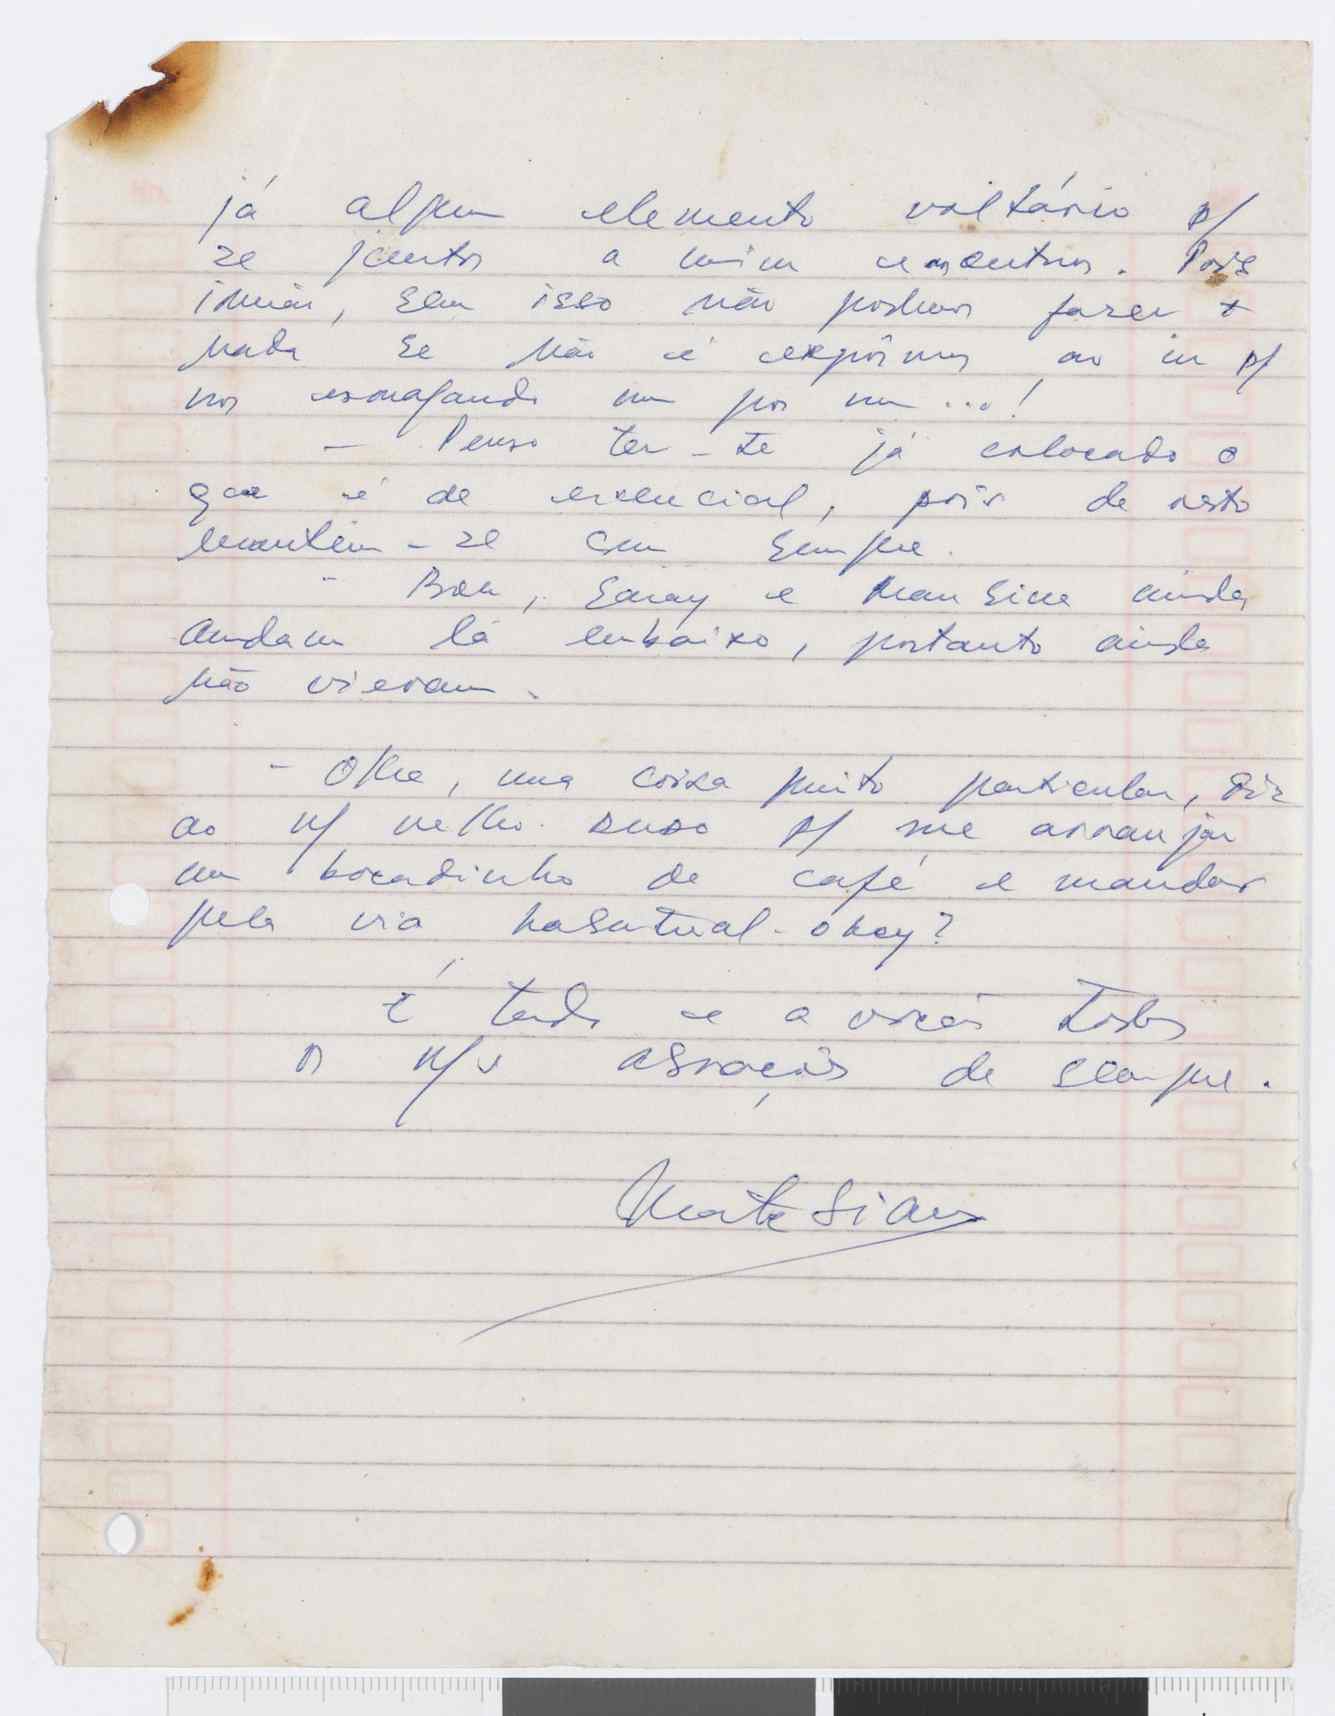 já algum elemento voltário p/
se juntar a mim e aos outros. Pois
irmão, sem isso não podemos fazer +
nada se não é expôrmos ao in p/
nos esmagando um por um ...!
- Penso ter-te já colocado o
que é de essencial, pois de resto
mantém-se com sempre.
- Bem, Saray e Mansine ainda
andam lá embaixo, portanto ainda
não vieram.
- Olhe, uma coisa muito particular, diz
ao n/ velho p/ me arranjar
um bocadinho de café e mandar
pela via okay?
É tudo e a vocês todos
os n/s abraços de sempre.